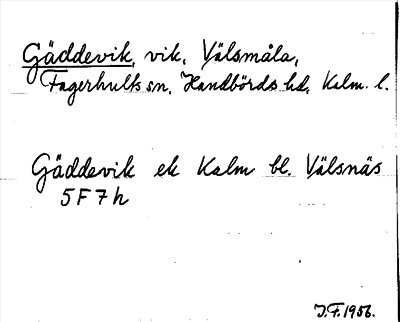 Gäddevik, vik, Välsmåla,
Fagerhults sn, Handbörds hd, Kalm. l.
Gäddevik ek Kalm bl. Välsnäs
5 F 7 h
J.F. 1956.